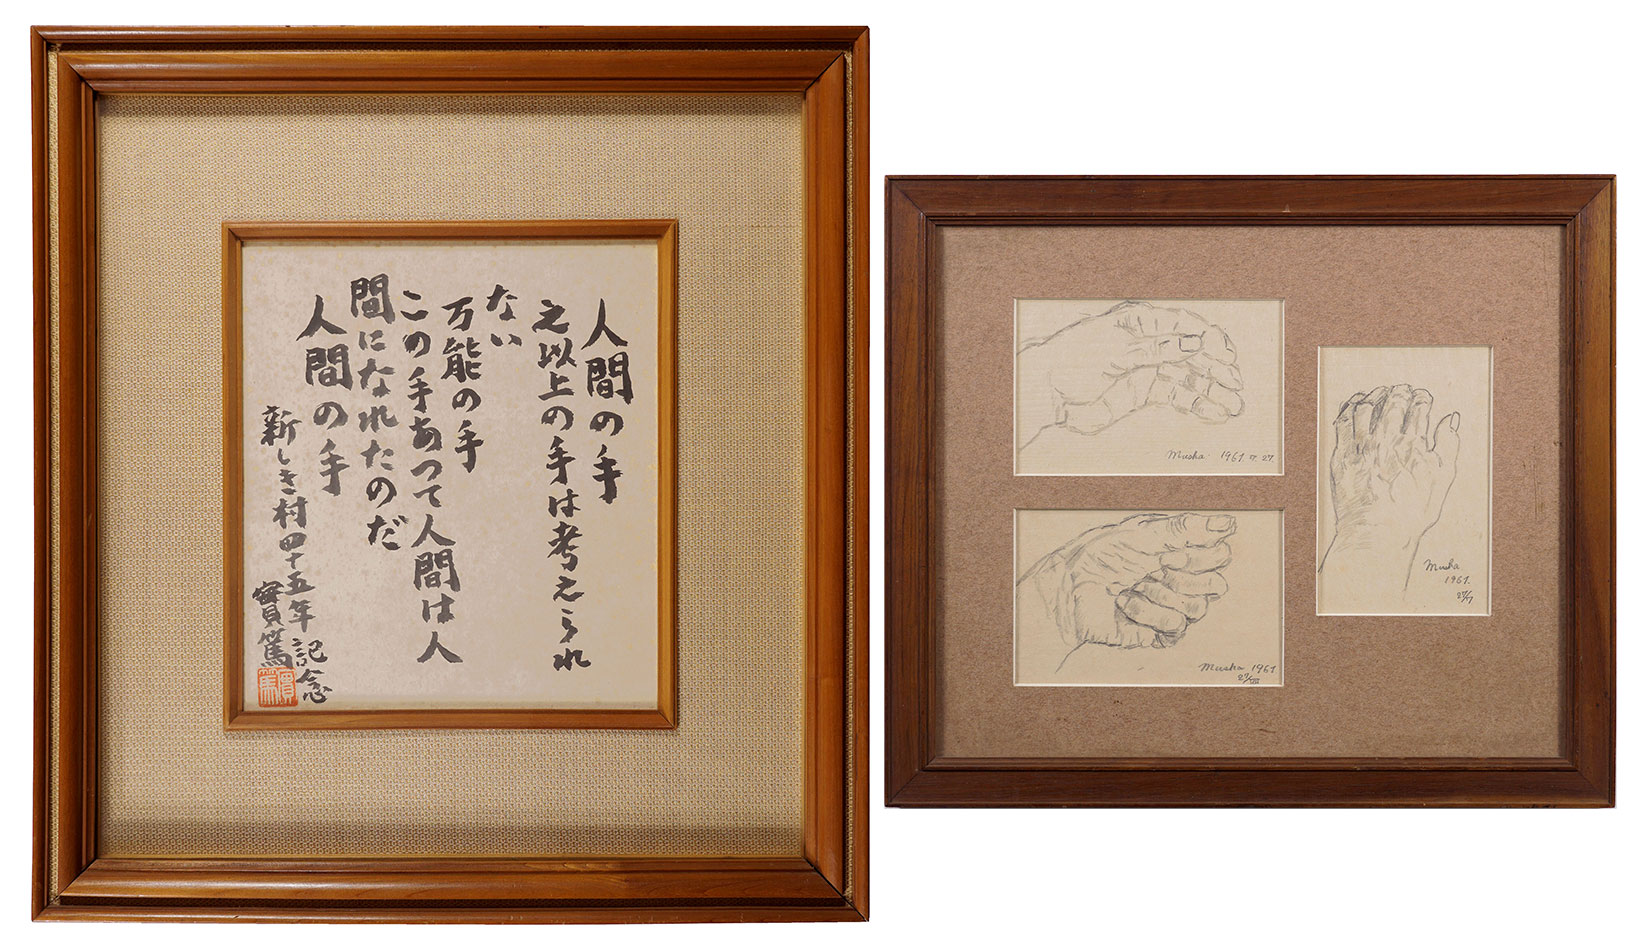 人間の手
之以上の手は考えられ
ない
万能の手
この手あつて人間は人
間になれたのだ
人間の手
新しき村四十五年記念
實篤
實篤
Musha. 1961
Musha 1961
27/VII
Musha
1961.